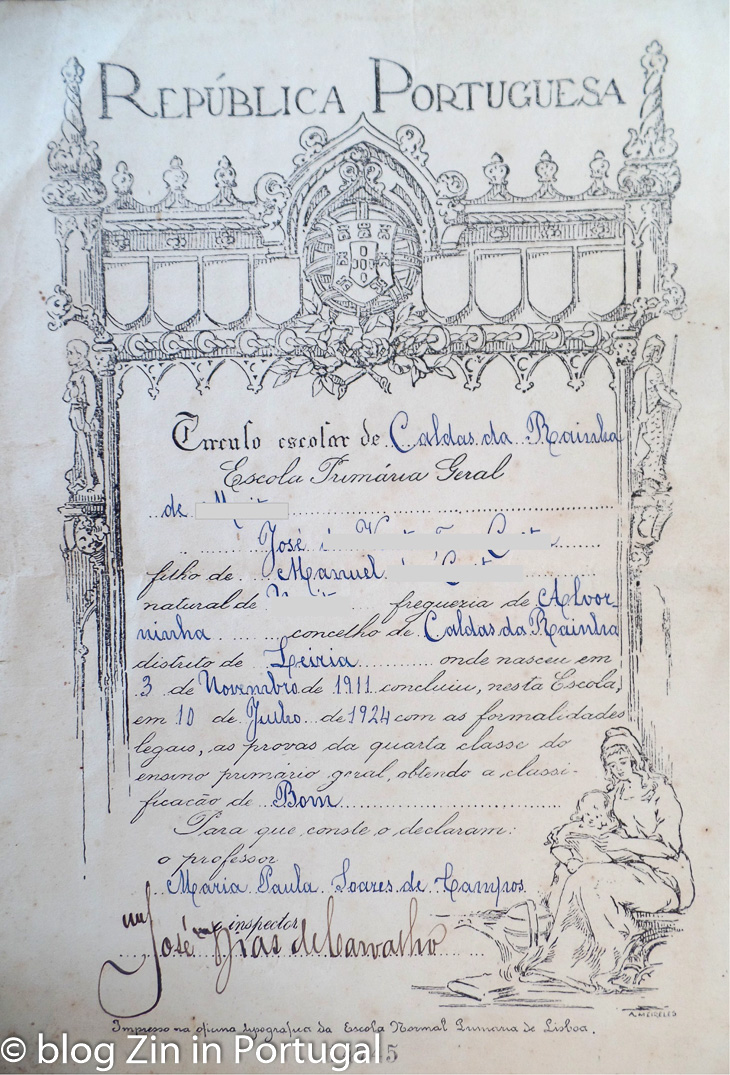 República Portuguesa
Circulo escolar de Caldas da Rainha
Escola Primária Geral
de
José
filho de Manuel
natural de freguezia de Alvor-
ninha concelho de Caldas da Rainha
distrito de Leiria onde nasceu em
3 de Novembro de 1911 concluiu, nesta Escola,
em 10 de Julho de 1924 com as formalidades
legais, as provas da quarta classe do
ensino primário geral, obtendo a classi-
ficação de Bom
Para que conste o declaram:
o professor
Maria Paula Soares de Campos
inspector
José Dias de Carvalho
A. MEIRELES
Impresso na oficina typografica da Escola Normal Primaria de Lisboa.
© blog Zin in Portugal 45